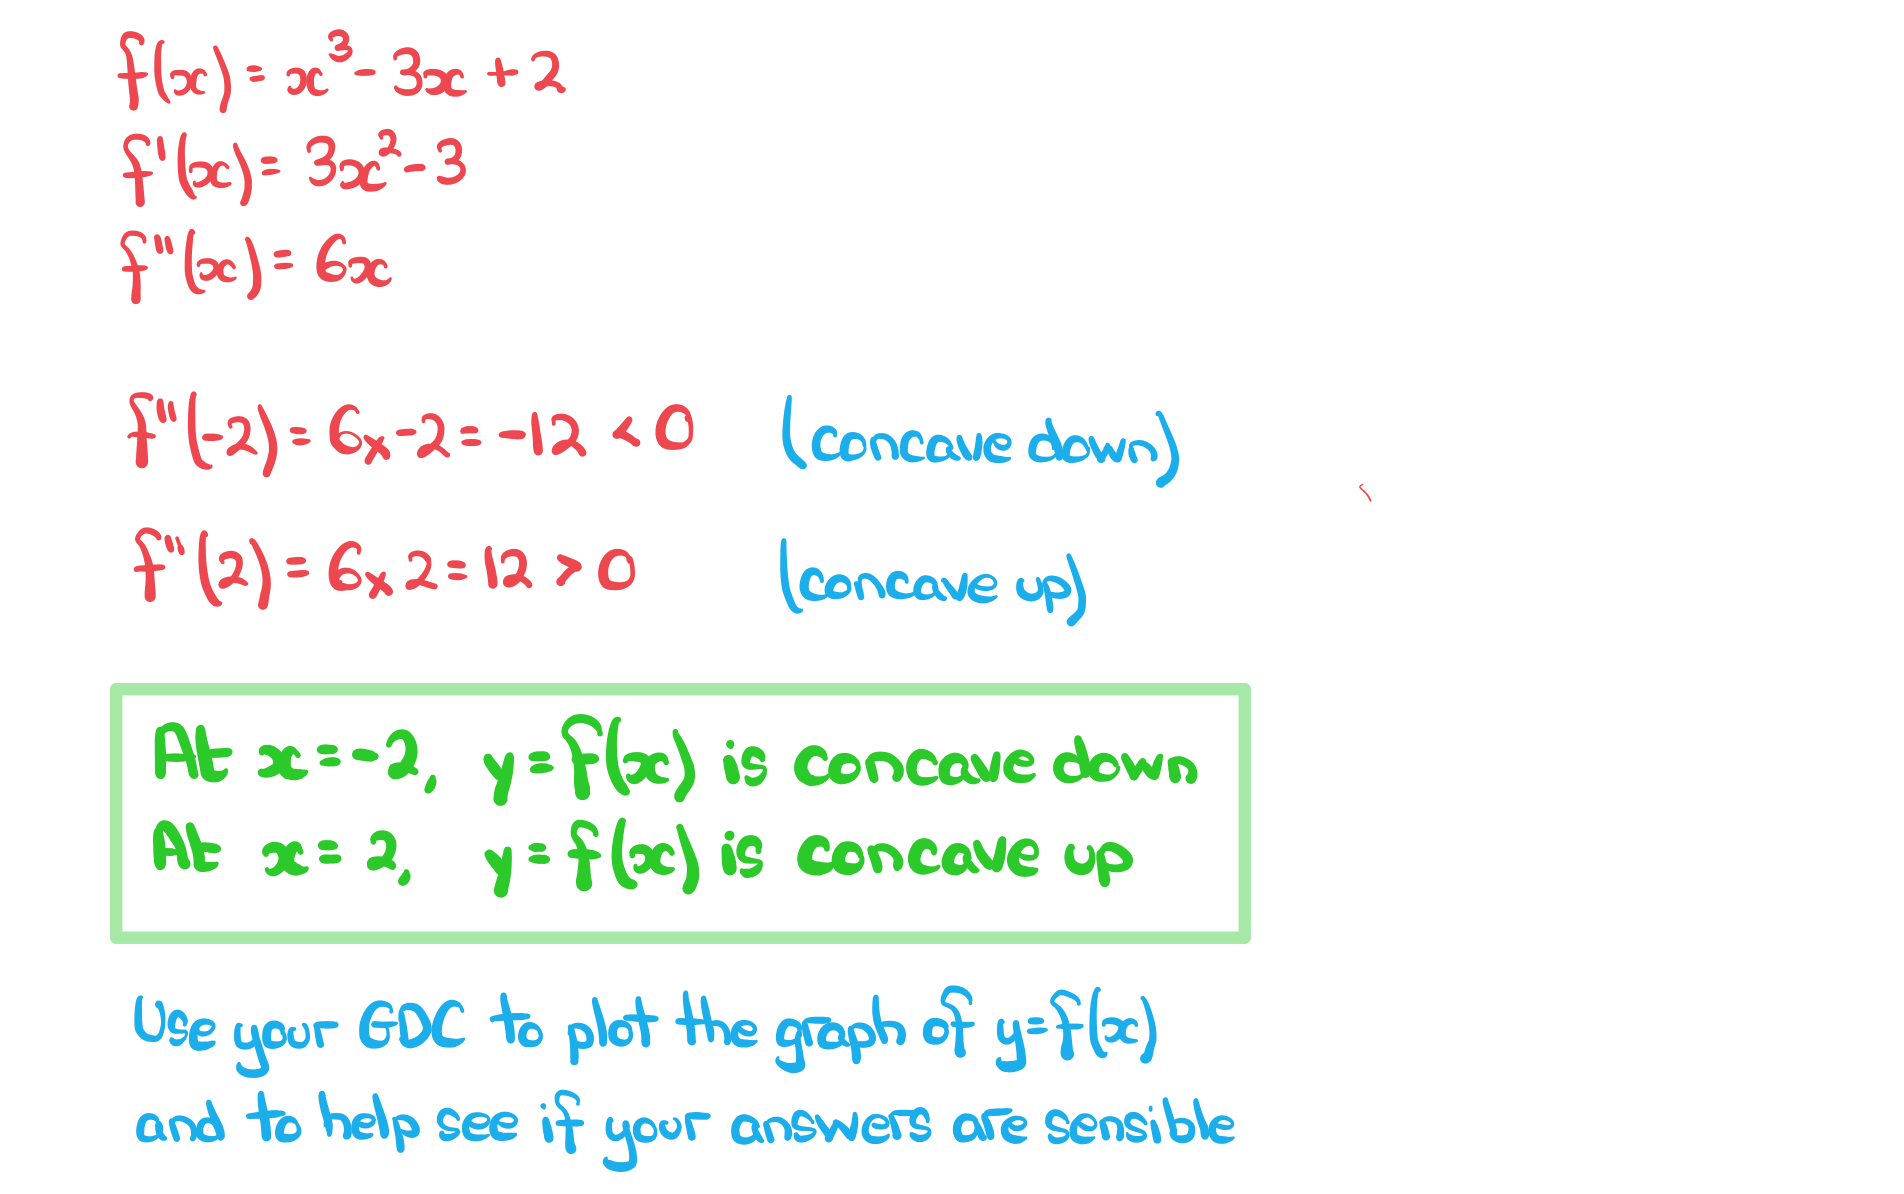 f(x) = x³ - 3x + 2
f'(x) = 3x² - 3
f''(x) = 6x
f''(-2) = 6x-2 = -12 < 0 (concave down)
f''(2) = 6x2 = 12 > 0 (concave up)
At x=-2, y=f(x) is concave down
At x=2, y=f(x) is concave up
Use your GDC to plot the graph of y=f(x)
and to help see if your answers are sensible